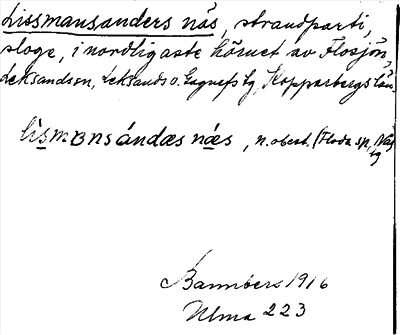 Lissmansanders näs, strandparti,
sloge, i nordligaste hörnet av Flosjön,
Leksandssn, Leksands o. Gagnefs tg, Kopparbergs län.
lìsmansándæs næs, n. obest. (Floda sn, Nås
tg
Bannbers 1916
Ulma 223